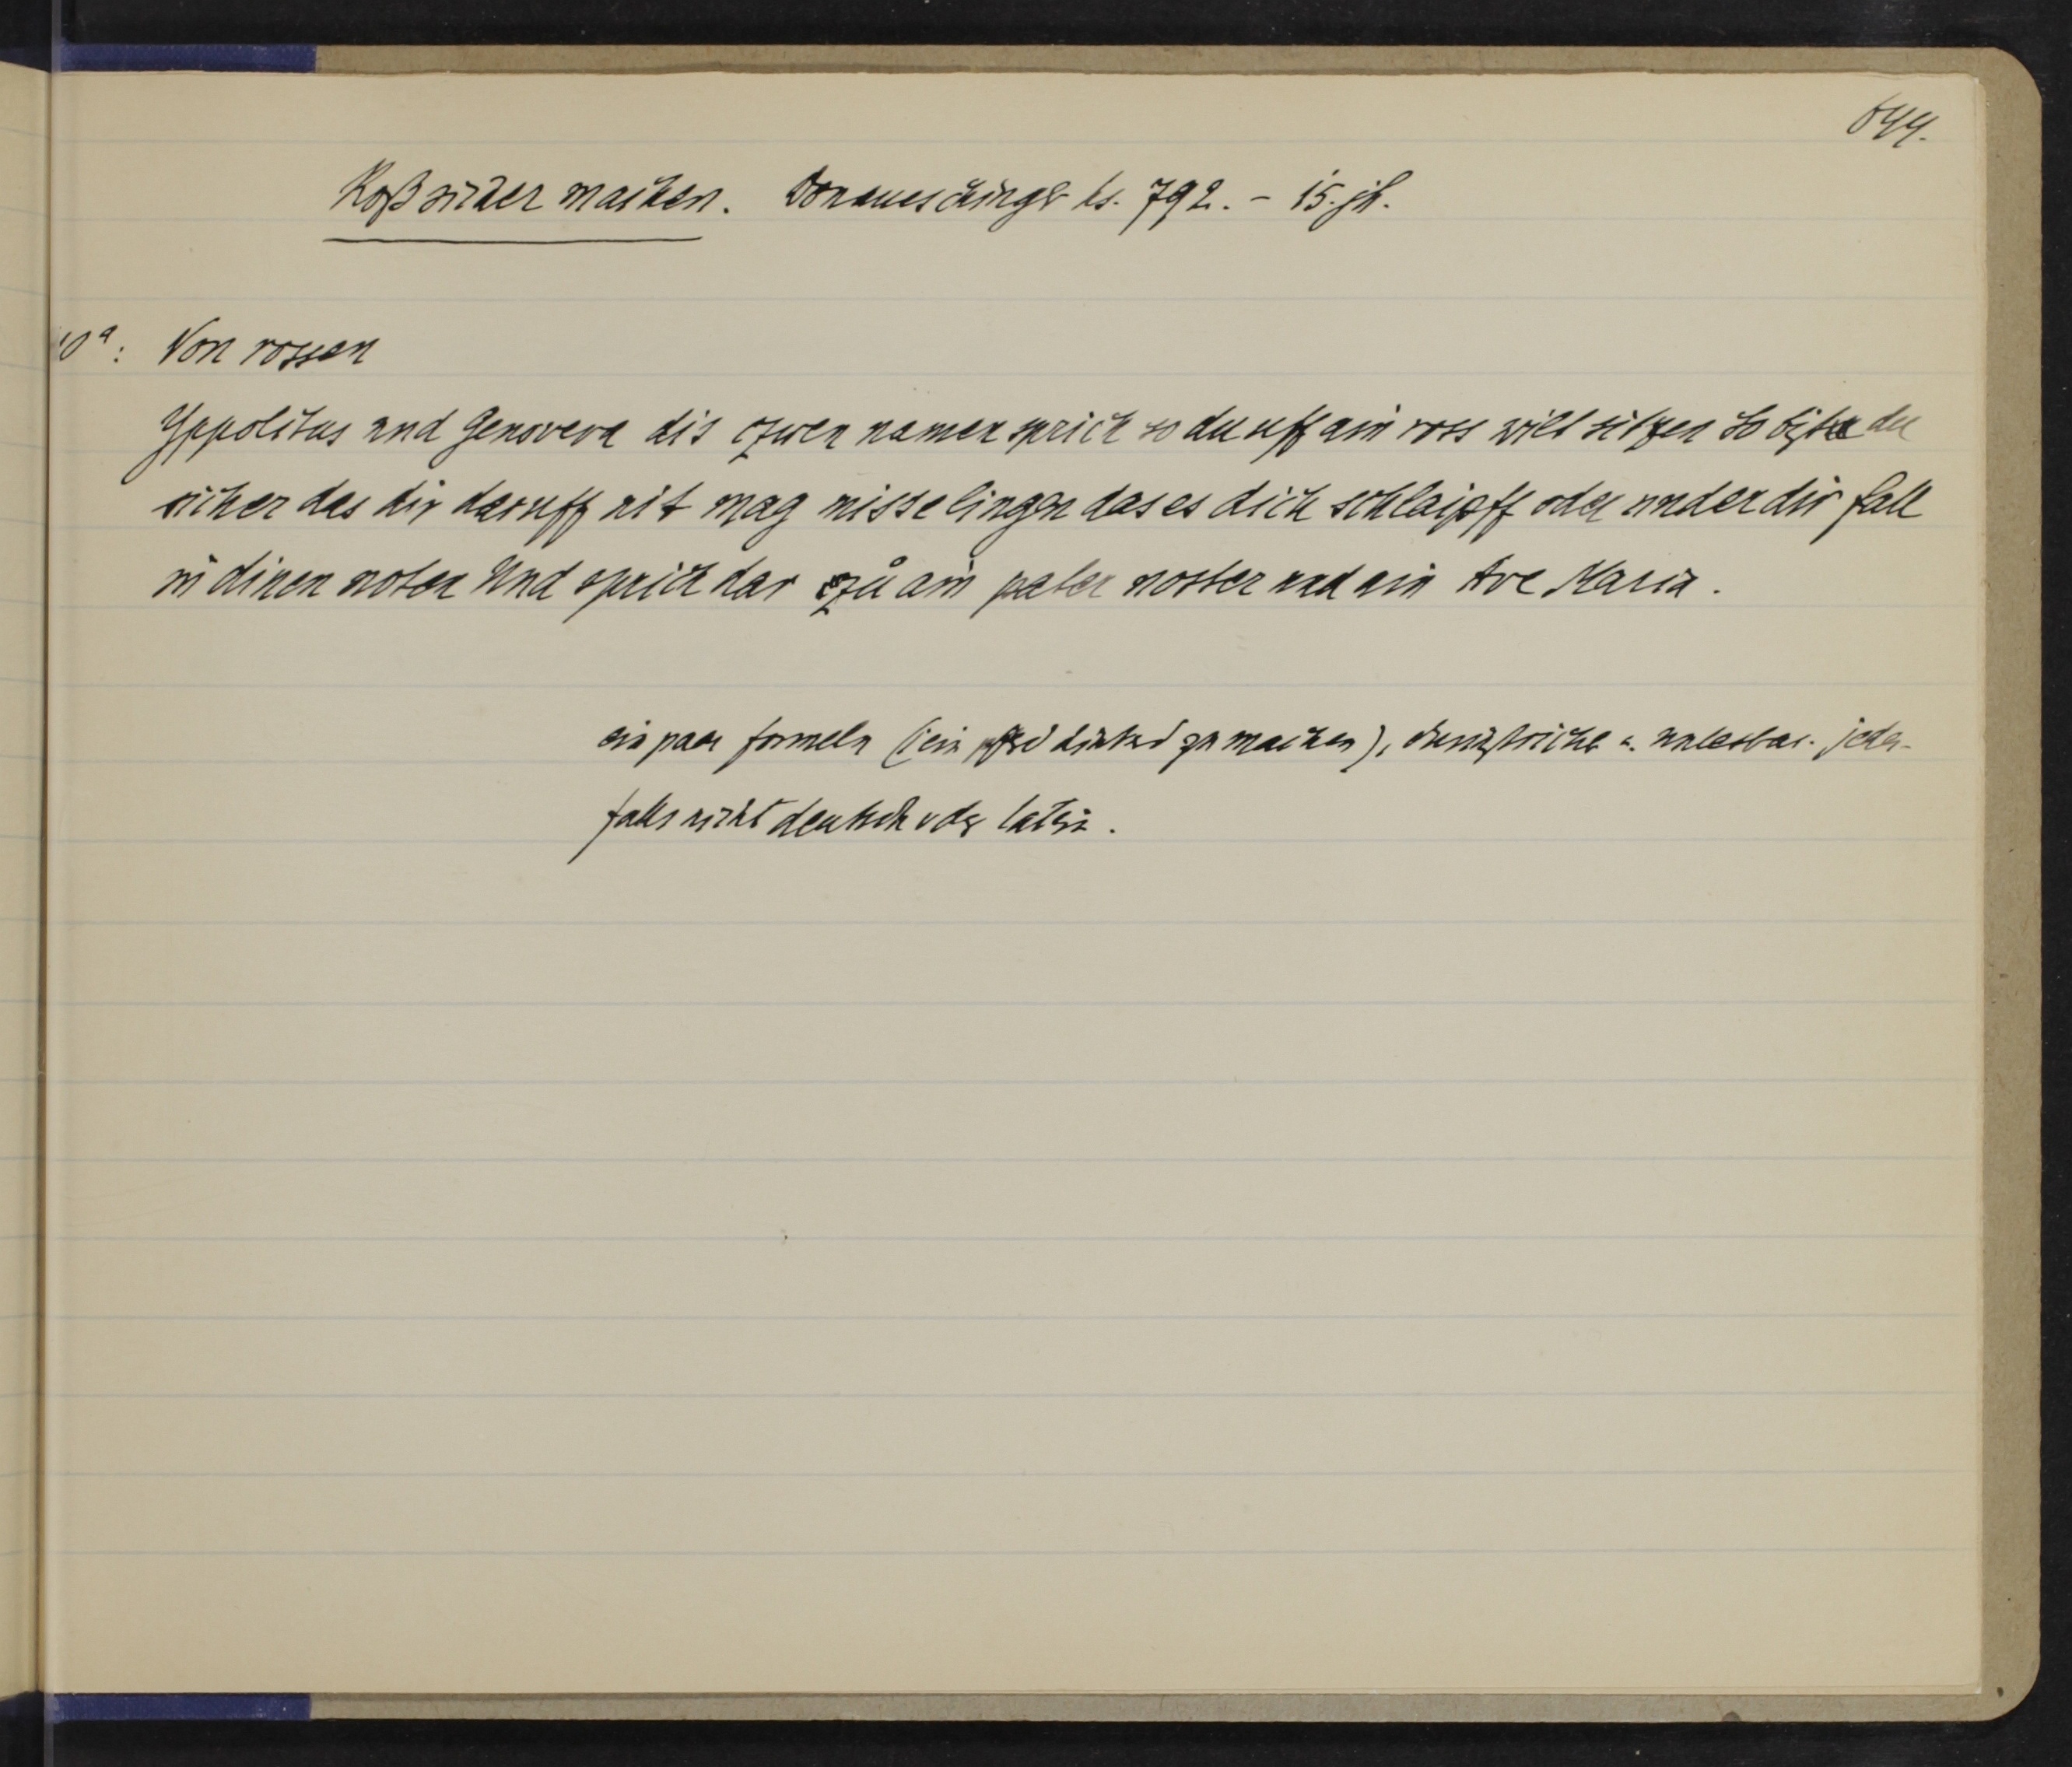 644.
Roß sicher machen. Donaueschinger hs. 792. - 15. jh.
10ᵃ: Von rossen
Yppolitus und Genoveva dis czwen namen sprich so du uff ain ross wilt sitzen So bist du
sicher das dir daruff nit mag misselingen das es dich schlaipff oder under dir fall
in dinen noten Und sprich dar czů ain pater noster und ain Ave Maria.
ein paar formeln (ein pferd hinkend zu machen), durchstrichen u. unlesbar. jeden-
falls nicht deutsch oder latein.